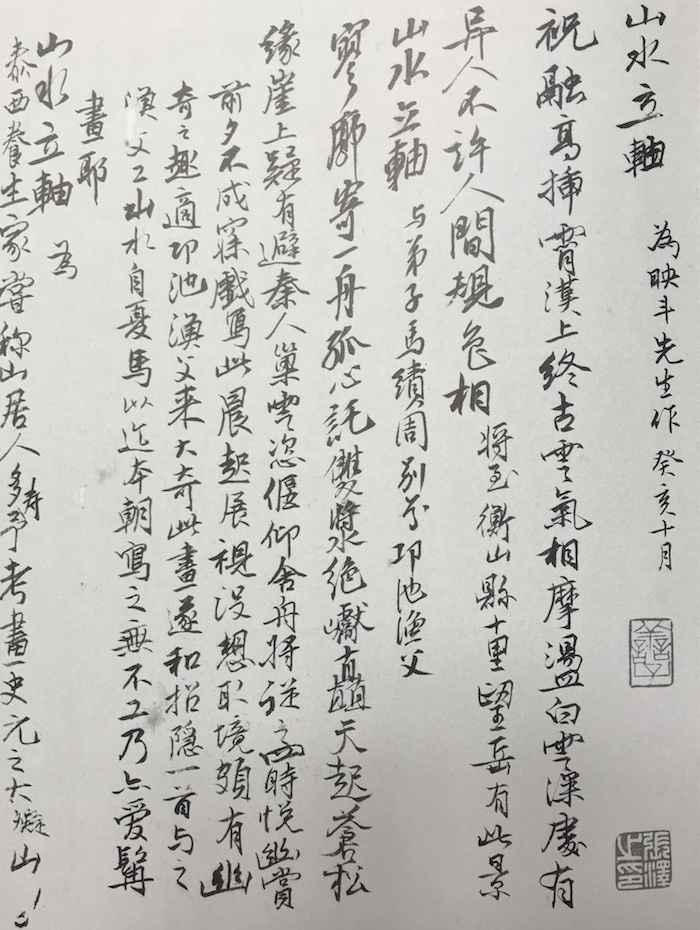 山水立軸 為映斗先生作 癸亥十月
張澤之印
祝融高插霄漢上終古雲氣相摩盪白雲深處有
异人不許人間規色相 將至衡山縣十里望岳有此景
山水立軸 与弟子馬績周别号邛池漁父
寥廓寄一舟孤心託雙槳絕巘直矗天起蒼松
緣崖上疑有避秦人巢雲恣偃仰舍舟將從時悅幽賞
前夕不成寐戲寫此晨起展視設想取境頗有幽
奇之趣適邛池漁父来大奇此畫遂和招隱一首与之
漁父工山水自夏馬以迄本朝寫之無不工乃亦愛髯
畫耶
山水立軸 為
泰西養生家嘗称山居人多壽予考畫史元之大癡山